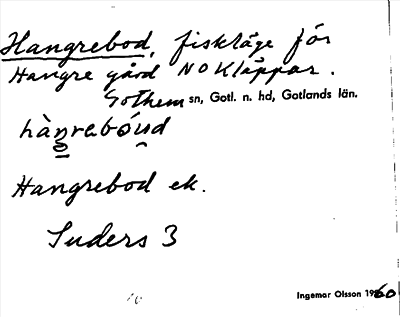 Hangrebod, fiskläge för
Hangre gård NO Kläppar.
Gothem sn, Gotl. n. hd, Gotlands län.
hàŋrabóud
Hangrebod ek.
Suders 3
Ingemar Olsson 1960